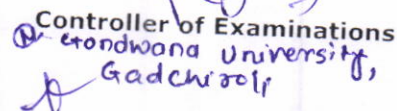 Controller of Examinations
Gondwana University,
Gadchiroli